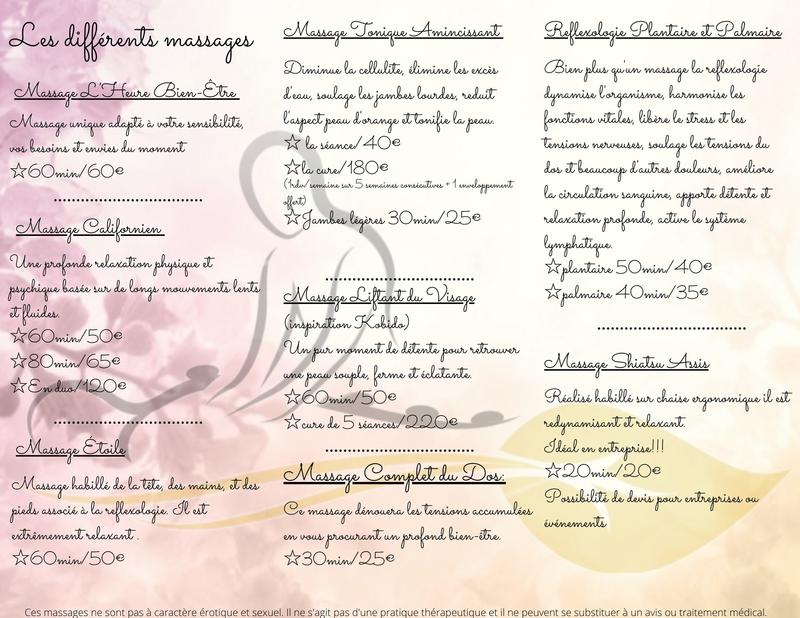 Les différents massages
Massage L'Heure Bien-Être
Massage unique adapté à votre sensibilité,
vos besoins et envies du moment
☆60min/60€
Massage Californien
Une profonde relaxation physique et
psychique basée sur de longs mouvements lents
et fluides.
☆60min/50€
☆80min/65€
☆En duo/120€
Massage Étoile
Massage habillé de la tête, des mains, et des
pieds associé à la reflexologie. Il est
extrêmement relaxant .
☆60min/50€
Massage Tonique Amincissant
Diminue la cellulite, élimine les excès
d'eau, soulage les jambes lourdes, reduit
l'aspect peau d'orange et tonifie la peau.
☆ la séance/40€
☆la cure/180€
(1rdv/semaine sur 5 semaines consécutives + 1 enveloppement
offert)
☆Jambes légères 30min/25€
Massage Liftant du Visage
(inspiration Kobido)
Un pur moment de détente pour retrouver
une peau souple, ferme et éclatante.
☆60min/50€
☆cure de 5 séances/220€
Massage Complet du Dos:
Ce massage dénouera les tensions accumulées
en vous procurant un profond bien-être.
☆30min/25€
Reflexologie Plantaire et Palmaire
Bien plus qu'un massage la reflexologie
dynamise l'organisme, harmonise les
fonctions vitales, libère le stress et les
tensions nerveuses, soulage les tensions du
dos et beaucoup d'autres douleurs, améliore
la circulation sanguine, apporte détente et
relaxation profonde, active le système
lymphatique.
☆plantaire 50min/40€
☆palmaire 40min/35€
Massage Shiatsu Assis
Réalisé habillé sur chaise ergonomique il est
redynamisant et relaxant.
Idéal en entreprise!!!
☆20min/20€
Possibilité de devis pour entreprises ou
événements
Ces massages ne sont pas à caractère érotique et sexuel. Il ne s'agit pas d'une pratique thérapeutique et il ne peuvent se substituer à un avis ou traitement médical.